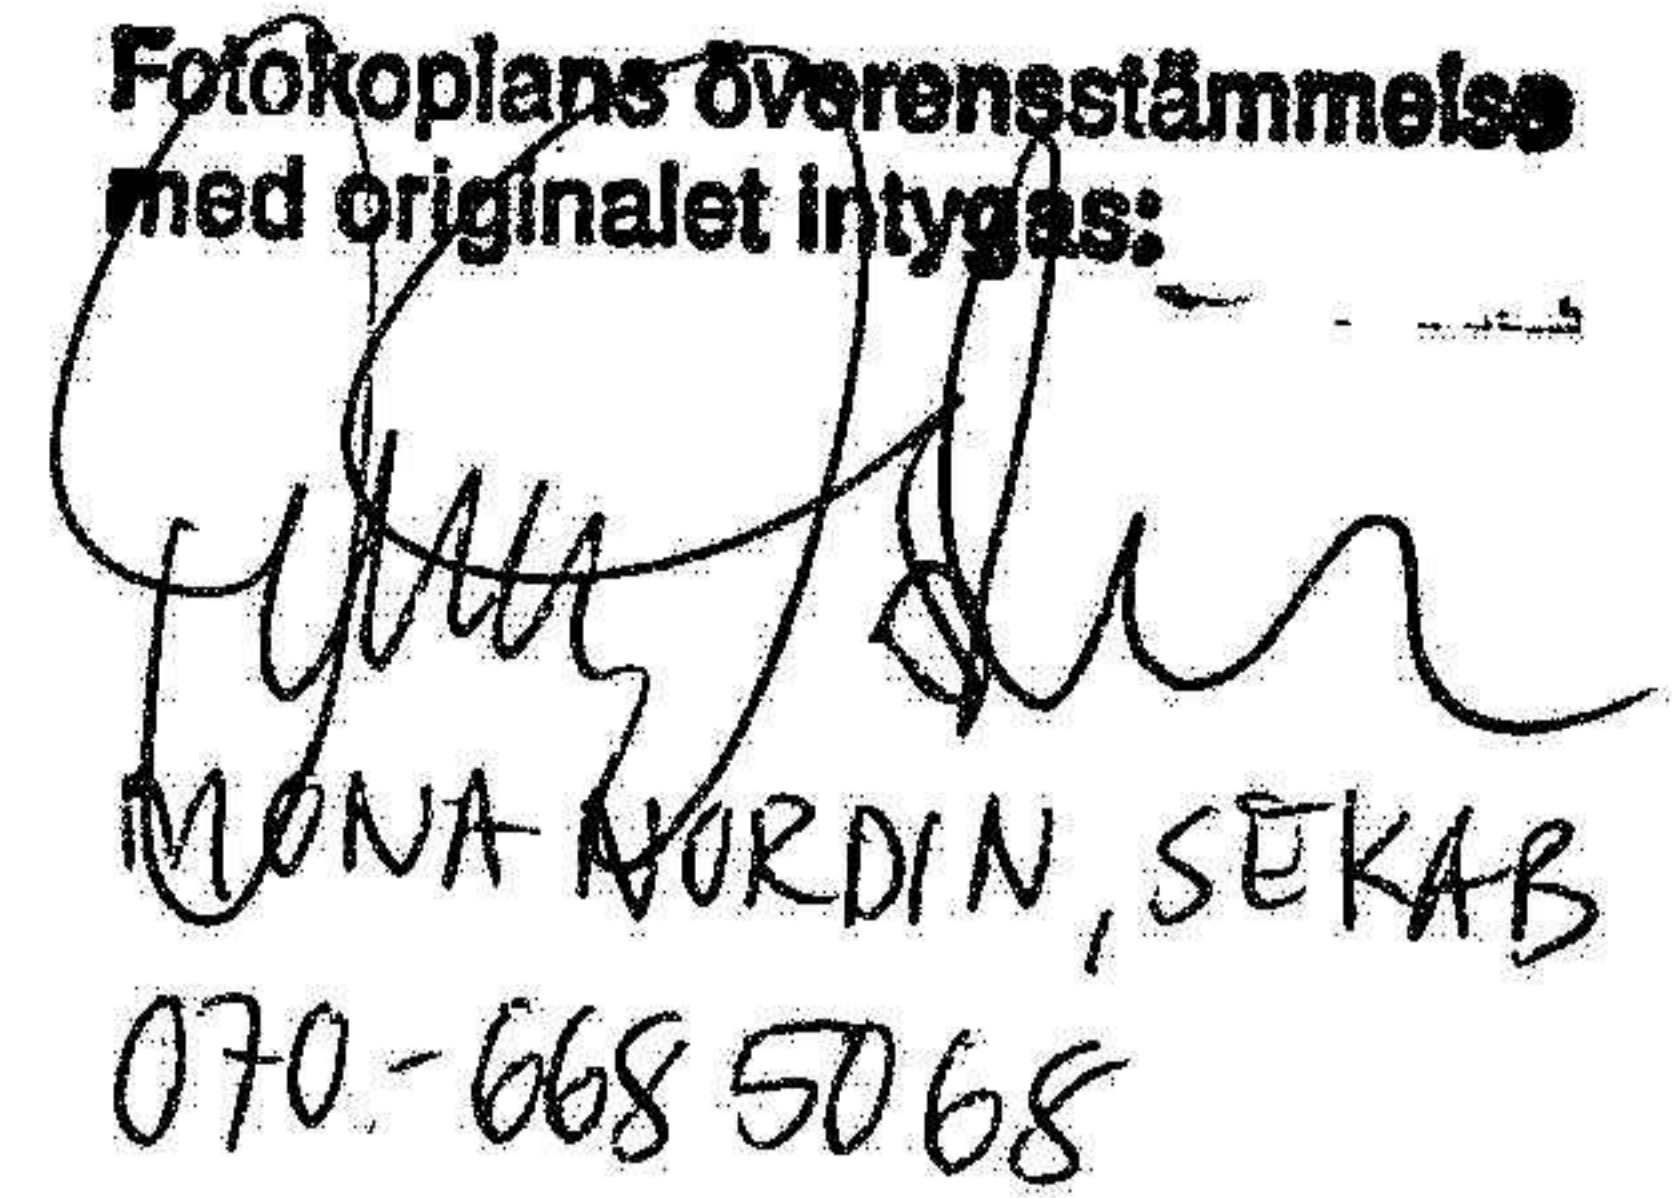 Fotokopians överensstämmelse
med originalet intygas:
MONA NORDIN, SEKAB
070-668 50 68